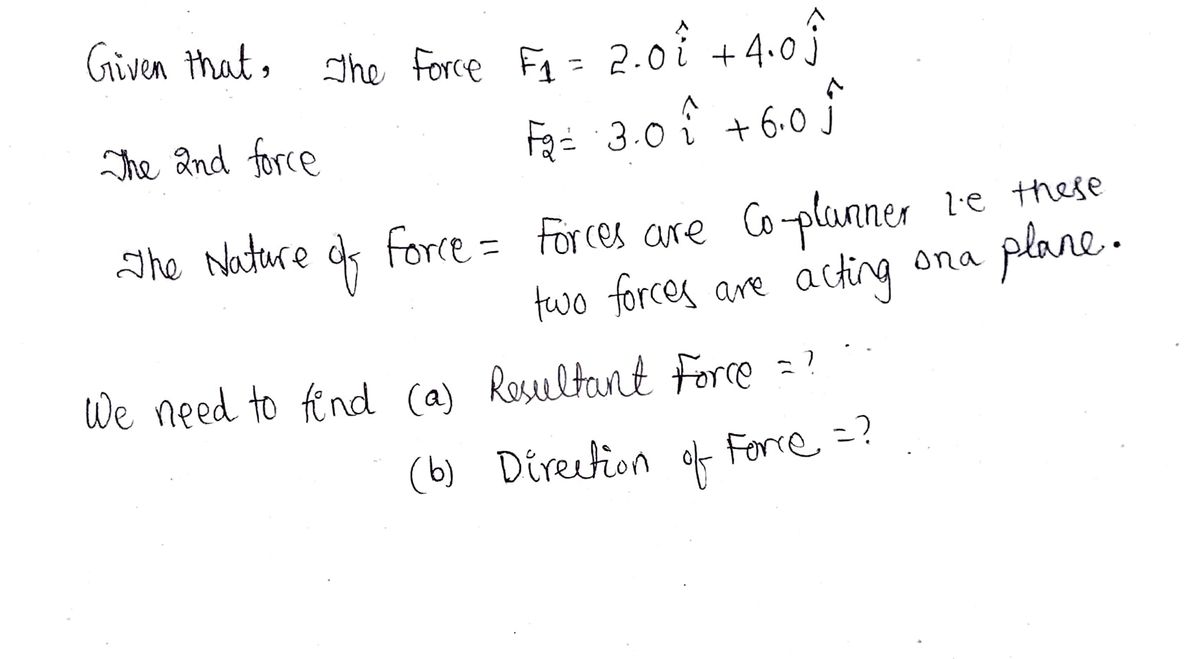 Given that, The Force F1 = 2.0 î + 4.0 ĵ
The 2nd force F2 = 3.0 î + 6.0 ĵ
The Nature of Force = Forces are Co-planner i.e these
two forces are acting on a plane.
We need to find (a) Resultant Force = ?
(b) Direction of Force = ?